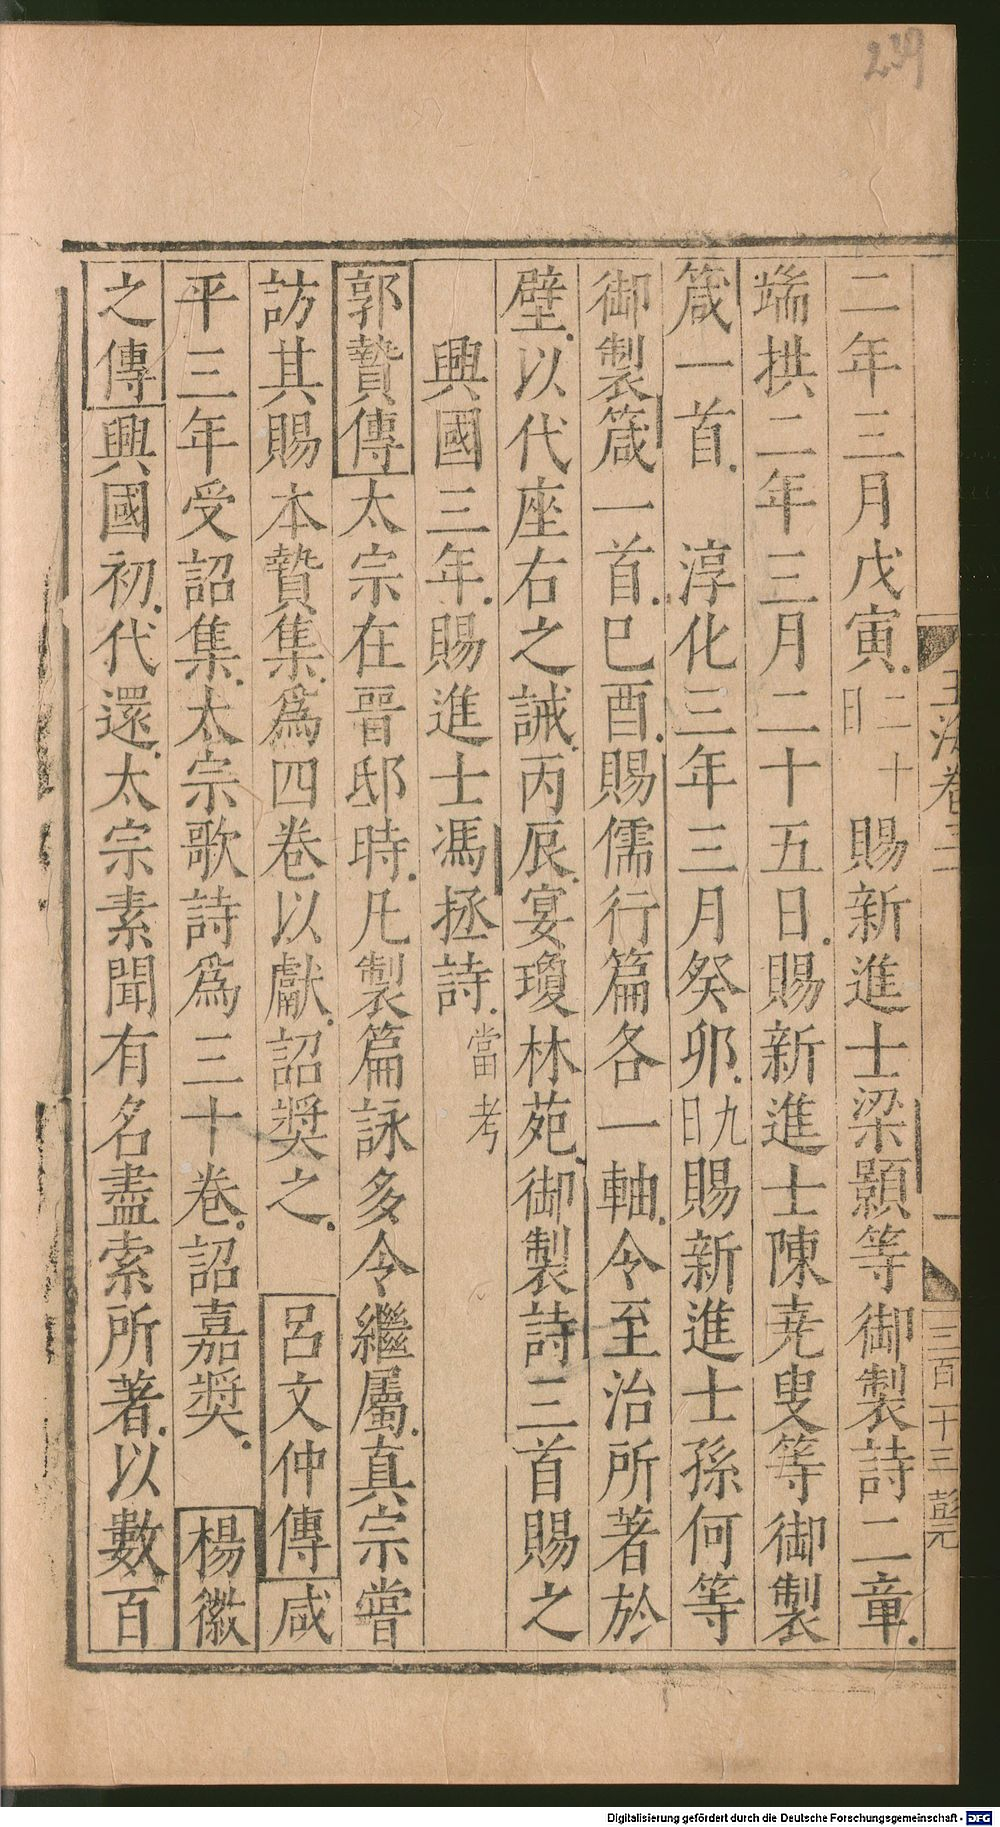 239
二年三月戊寅二十日賜新進士梁顥等御製詩二章
端拱二年三月二十五日賜新進士陳堯叟等御製
箴一首 淳化三年三月癸卯九日賜新進士孫何等
御製箴一首巳酉賜儒行篇各一軸令至治所著於
壁以代座右之誡丙辰宴瓊林苑御製詩三首賜之
興國三年賜進士馮拯詩當考
郭贄傳太宗在晉邸時凡製篇詠多令繼屬真宗嘗
訪其賜本贄集為四卷以獻詔奬之 呂文仲傳咸
平三年受詔集太宗歌詩為三十卷詔嘉奬 楊徽
之傳興國初代還太宗素聞有名盡索所著以數百
玉海卷三
三百十三 彭元
Digitalisierung gefördert durch die Deutsche Forschungsgemeinschaft - DFG